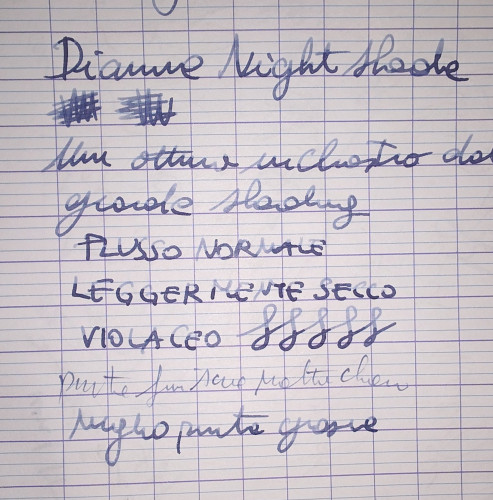 Diamine Night Shade
Un ottimo inchiostro dal
grande shading
FLUSSO NORMALE
LEGGERMENTE SECCO
VIOLACEO
punte fini sono molto chiare
meglio punte grosse